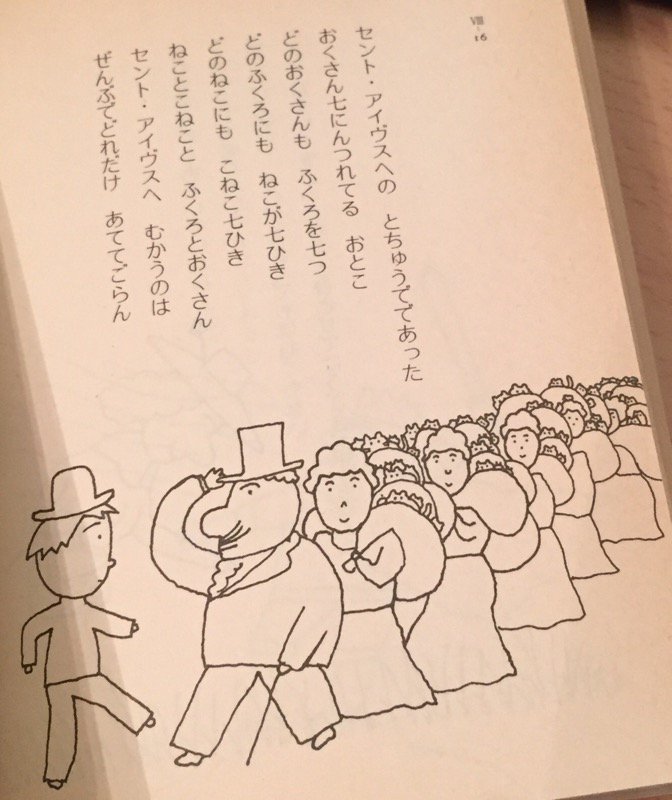 Ⅷ-16
セント・アイヴスへの　とちゅうででであった
おくさん七にんつれてる　おとこ
どのおくさんも　ふくろを七つ
どのふくろにも　ねこが七ひき
どのねこにも　こねこ七ひき
ねことこねこと　ふくろとおくさん
セント・アイヴスへ　むかうのは
ぜんぶでどれだけ　あててごらん